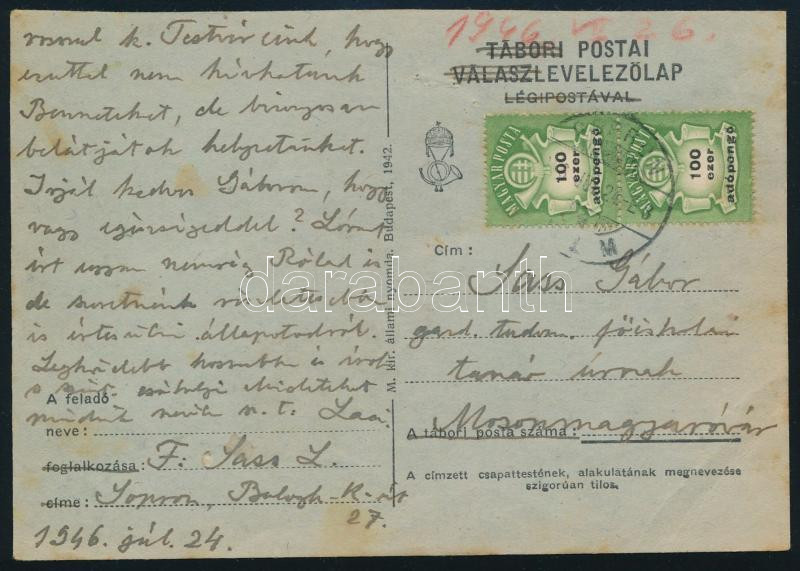 1946 VI 26.
TÁBORI POSTAI
VÁLASZLEVELEZŐLAP
LÉGIPOSTÁVAL
MAGYAR POSTA
100
ezer
adópengő
MAGYAR POSTA
100
ezer
adópengő
M. kir. állami nyomda, Budapest, 1942.
k. Testvéreink, hogy
ezuttal nem hívhatunk
Benneteket, de bizonyosan
belátjátok helyzetünket.
Írjál kedves Gáborom, hogy
vagy egészségeddel? Lóránt
írt ugyan nemrég Rólad is
de szeretnénk
is állapotodról.
Legközelebb hosszabban is írok
Mindeteket
A feladó
neve:
foglalkozása: F: Sass L.
címe: Sopron, Balogh-K-út
27.
1946. júl. 24.
Cím:
Sass Gábor
gazd. tudom. főiskolai
tanár úrnak
Mosonmagyaróvár
A tábori posta száma:
A címzett csapattestének, alakulatának megnevezése
szigorúan tilos.
darabanth.com